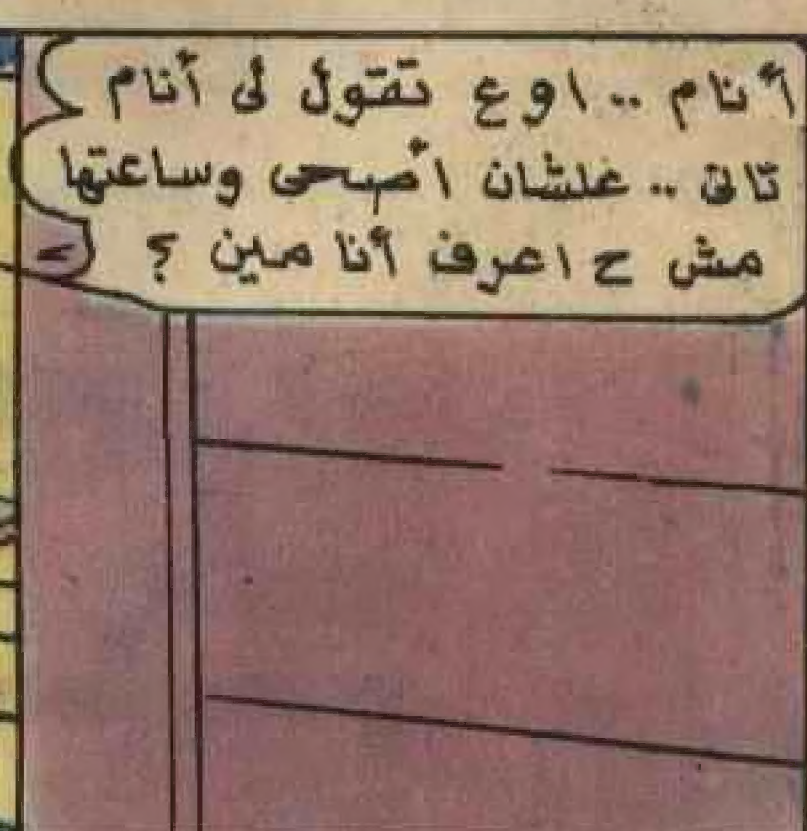 أنام .. اوع تقول لى أنام
تانى .. علشان أصحى وساعتها
مش ح اعرف أنا مين ؟